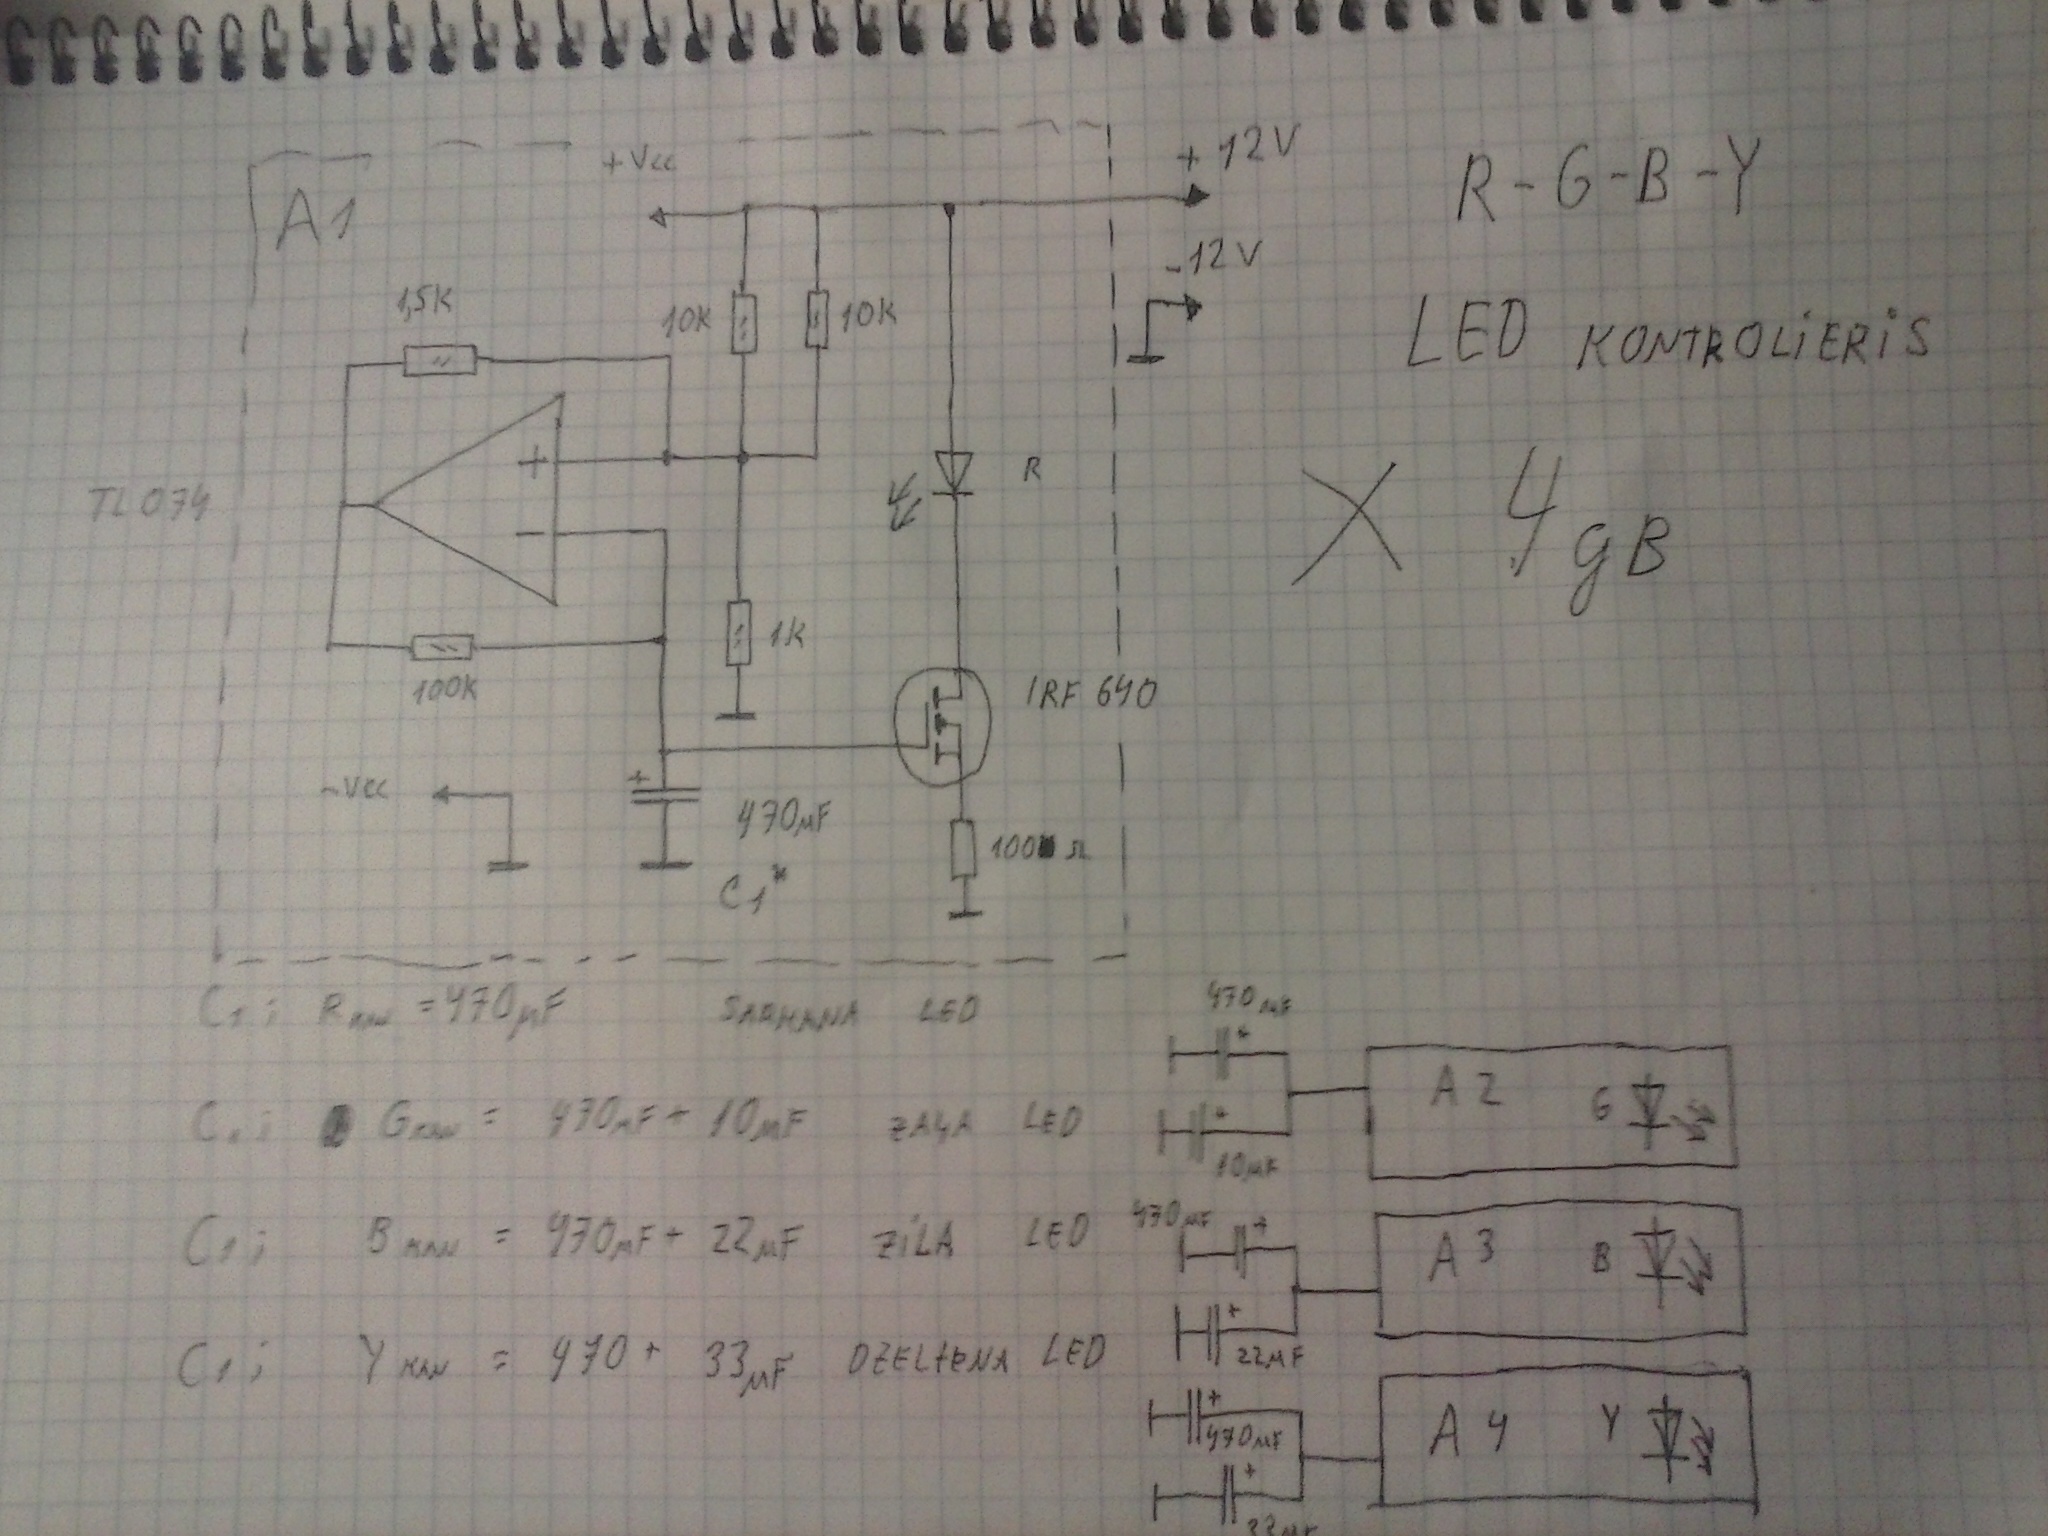 A1
+Vcc
+12V
-12V
R-G-B-Y
LED KONTROLIERIS
X 4 gB
1,5K
10K
10K
+
-
TL074
R
100K
1K
IRF 640
-Vcc
+
470µF
C1*
100 Ω
C1; R KAN = 470µF SARKANA LED
C1; G KAN = 470µF + 10µF ZAĻA LED
C1; B KAN = 470µF + 22µF ZILA LED
C1; Y KAN = 470 + 33µF DZELTENA LED
470µF
+
+
10µF
A2 G
470µF
+
+
22µF
A3 B
+
470µF
+
33µF
A4 Y